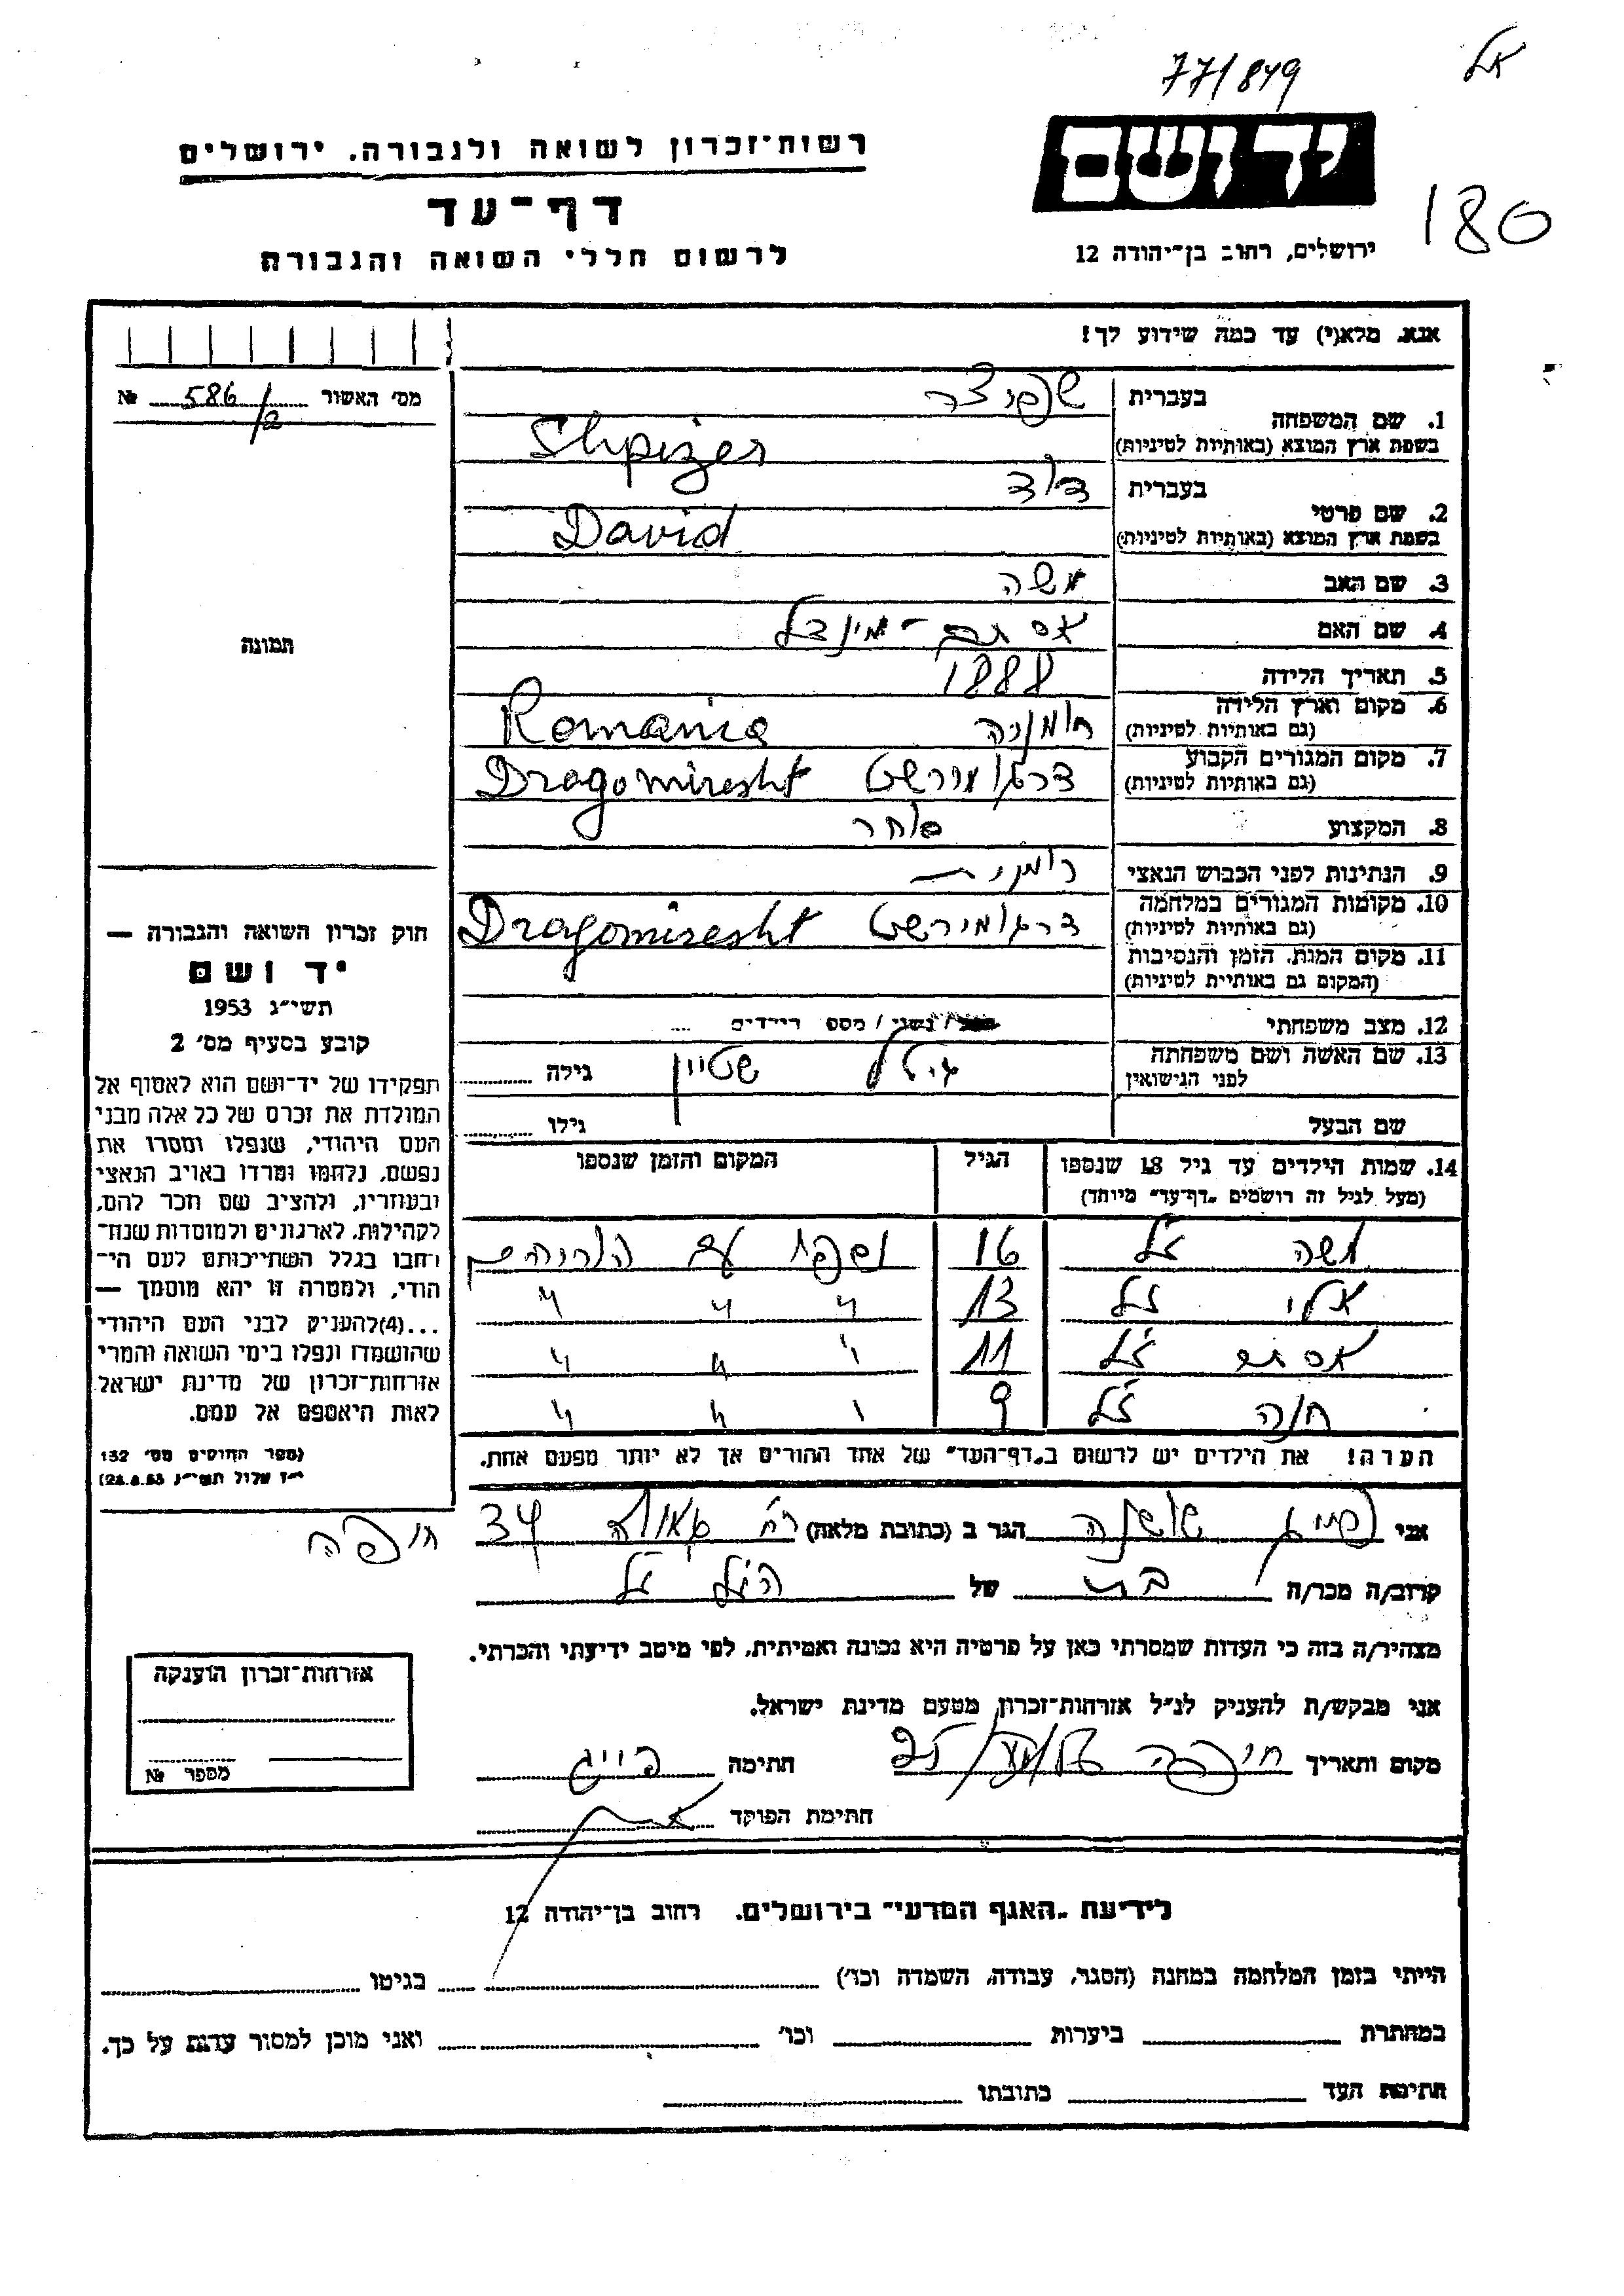 77/849
אל
רשות־זכרון לשואה ולגבורה. ירושלים
יד ושם
180
דף־עד
ירושלים, רחוב בן־יהודה 12
לרשום חללי השואה והגבורה
אנא, מלא(י) עד כמה שידוע לך!
מס׳ האשור 586/2 №
1. שם המשפחה בעברית שפיצר
בשפת ארץ המוצא (באותיות לטיניות) Shpizer
2. שם פרטי בעברית דוד
בשפת ארץ המוצא (באותיות לטיניות) David
3. שם האב משה
4. שם האם אסתר - מינדל
5. תאריך הלידה 1888
6. מקום וארץ הלידה רומניה Romania
(גם באותיות לטיניות)
7. מקום המגורים הקבוע דרגומירשט Dragomiresht
(גם באותיות לטיניות)
8. המקצוע סוחר
9. הנתינות לפני הכבוש הנאצי רומנית
10. מקומות המגורים במלחמה דרגומירשט Dragomiresht
(גם באותיות לטיניות)
11. מקום המות, הזמן והנסיבות
(המקום גם באותיות לטיניות)
12. מצב משפחתי / נשוי / מספר הילדים
13. שם האשה ושם משפחתה גיטל שטיין גילה
לפני הנישואין
שם הבעל גילו
תמונה
חוק זכרון השואה והגבורה —
יד ושם
תשי״ג 1953
קובע בסעיף מס׳ 2
תפקידו של יד־ושם הוא לאסוף אל
המולדת את זכרם של כל אלה מבני
העם היהודי, שנפלו ומסרו את
נפשם, נלחמו ומרדו באויב הנאצי
ובעוזריו, ולהציב שם וזכר להם,
לקהילות, לארגונים ולמוסדות שנח־
רבו בגלל השתייכותם לעם הי־
הודי, ולמטרה זו יהא מוסמך —
...(4) להעניק לבני העם היהודי
שהושמדו ונפלו בימי השואה והמרי
אזרחות־זכרון של מדינת ישראל
לאות היאספם אל עמם.
(ספר החוקים מס׳ 132
י״ז אלול תשי״ג 28.8.53)
14. שמות הילדים עד גיל 18 שנספו הגיל המקום והזמן שנספו
(מעל לגיל זה רושמים „דף־עד״ מיוחד)
משה ז״ל 16 נספה עם ההורים
אלי ז״ל 13 " " "
אסתר ז״ל 11 " " "
חנה ז״ל 9 " " "
הערה! את הילדים יש לרשום ב„דף־העד״ של אחד ההורים אך לא יותר מפעם אחת.
אני פייג שושנה הגר ב (כתובת מלאה) רח׳ גאולה 34 חיפה
קרוב/ה מכר/ה בת של הנ״ל ז״ל
מצהיר/ה בזה כי העדות שמסרתי כאן על פרטיה היא נכונה ואמיתית, לפי מיטב ידיעתי והכרתי.
אני מבקש/ת להעניק לנ״ל אזרחות־זכרון מטעם מדינת ישראל.
מקום ותאריך חיפה חתימה פייג
חתימת הפוקד
אזרחות־זכרון הוענקה
מספר №
לידיעת „האגף המדעי״ בירושלים. רחוב בן־יהודה 12
הייתי בזמן המלחמה במחנה (הסגר, עבודה, השמדה וכו׳) בגיטו
במחתרת ביערות וכו׳ ואני מוכן למסור עדות על כך.
חתימת העד כתובתו